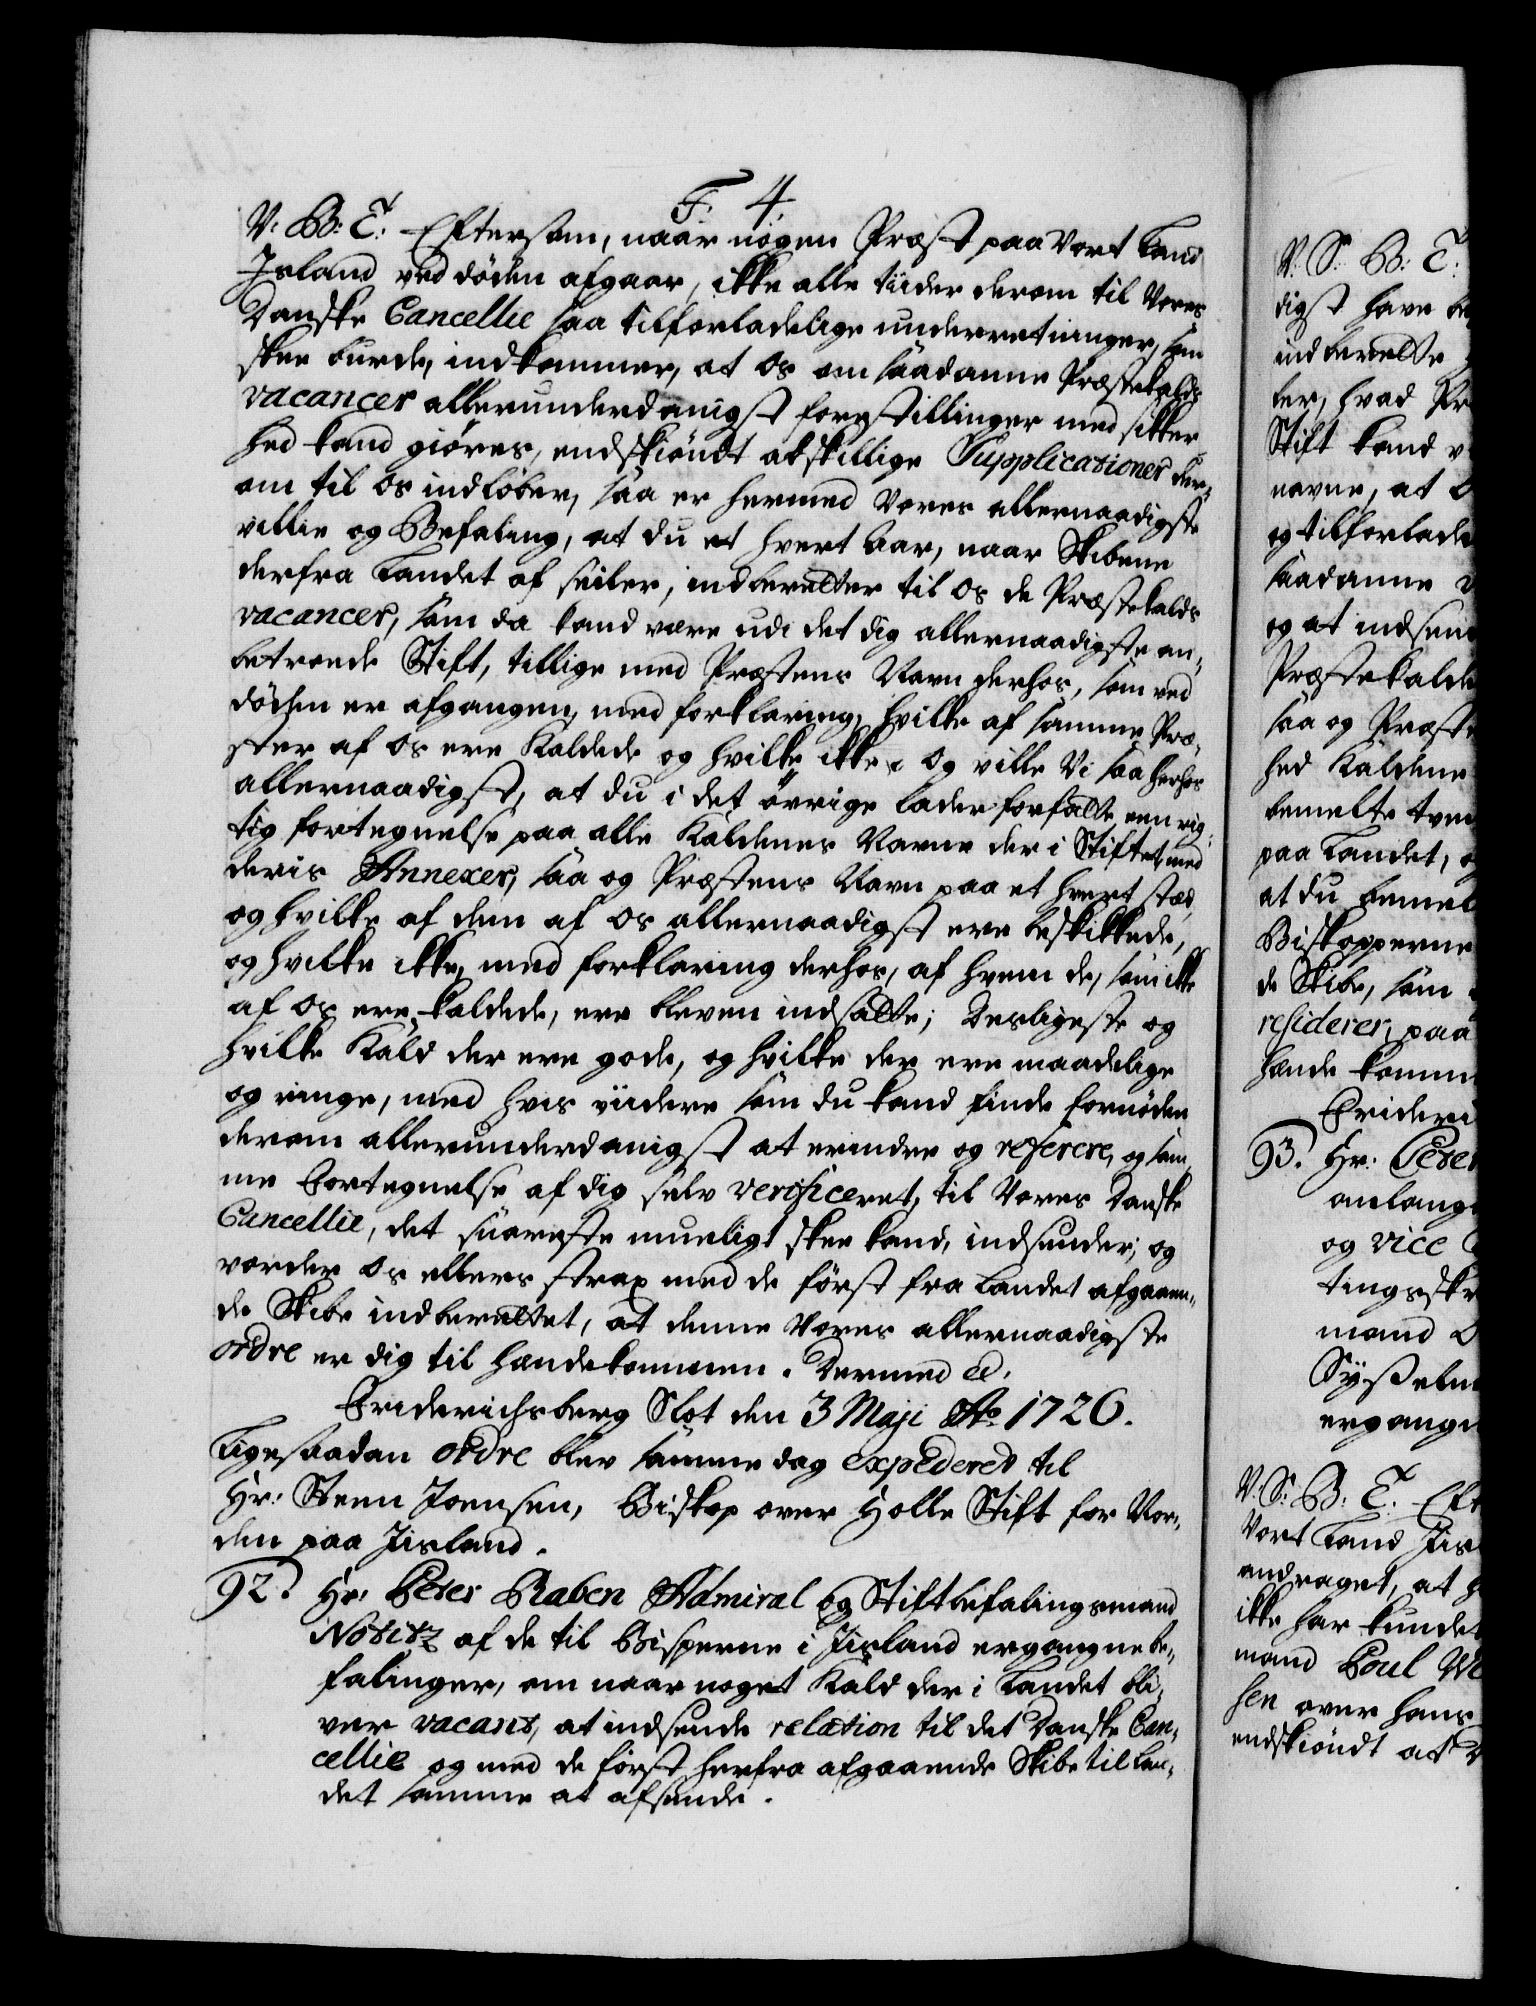 F. 4.
V: B: T: Eftersom, naar nogen Præst paa Vort Land
Island ved døden afgaar, ikke alle tiider derom til Vores
Danske Cancellie saa tilforladelige underretninger, som
skee burde, indkommer, at Os om saadanne Præstekalds
vacancer allerunderdanigst forestillinger med sikker
hed kand giöres, endskiöndt atskillige Supplicationer der-
om til Os indlöber, saa er hermed Vores allernaadigste
villie og Befaling, at du et hvert Aar, naar Skibene
derfra Landet af seiler, indberetter til Os de Præstekalds
vacancer, som da kand være udi det dig allernaadigste an-
betroede Stift, tillige med Præstens Navn derhos, som ved
döden er afgangen, med forklaring, hvilke af samme Præ-
ster af Os ere Kaldede og hvilke ikke, Og ville Vi saa herhos
allernaadigst, at du i det övrige lader forfatte een rig-
tig fortegnelse paa alle Kaldenes Navne der i Stiftet, med
deris Annexer, saa og Præstens Navn paa et hvert stæd,
og hvilke af dem af Os allernaadigst ere beskikkede,
og hvilke ikke, med forklaring derhos, af hvem de, som ikke
af Os ere kaldede, ere bleven indsatte; Desligeste og
hvilke Kald der ere gode, og hvilke der ere maadelige
og ringe, med hvis viidere som du kand finde fornöden
derom allerunderdanigst at erindre og referere, og sam-
me Fortegnelse af dig selv verificeret, til Vores Danske
Cancellie, det snareste mueligt skee kand, indsender; og
vorder Os ellers strax med de först fra Landet afgaaen-
de Skibe indberettet, at denne Vores allernaadigste
ordre er dig til hændekommen. Dermed etc.
Friderichsberg Slot den 3 Maji Ao 1726.
Ligesaadan ordre blev samme dag expederet til
Hr: Steen Joensen, Biskop over Holle Stift for Nor-
den paa Iisland.
92. Hr: Peter Raben Admiral og Stiftbefalingsmand
Notitz af de til Bisperne i Iisland ergangne be-
falinger, om naar noget Kald der i Landet bli-
ver vacant, at indsende relation til det Danske Can-
cellie og med de först herfra afgaaende Skibe til Lan-
det samme at afsende.
V: S: B: T:
digst have
indberette
ter, hvad
Stift kand
navne, at
og tilforlade
saadanne
og at indsen
Præstekalde
saa og Præste
hed Kaldene
bemelte
paa Landet,
at du bemel
Biskopperne
de Skibe, som
resider er, paa
hænde komm
Frideri
93. Hr: Peter
anlang
og vice
tingsskr
mand
Sysselm
ergange
V: S: B: T: Eft
Vort Land Iis
andraget, at
ikke har kundet
mand Poul
sen over hans
endskiöndt at